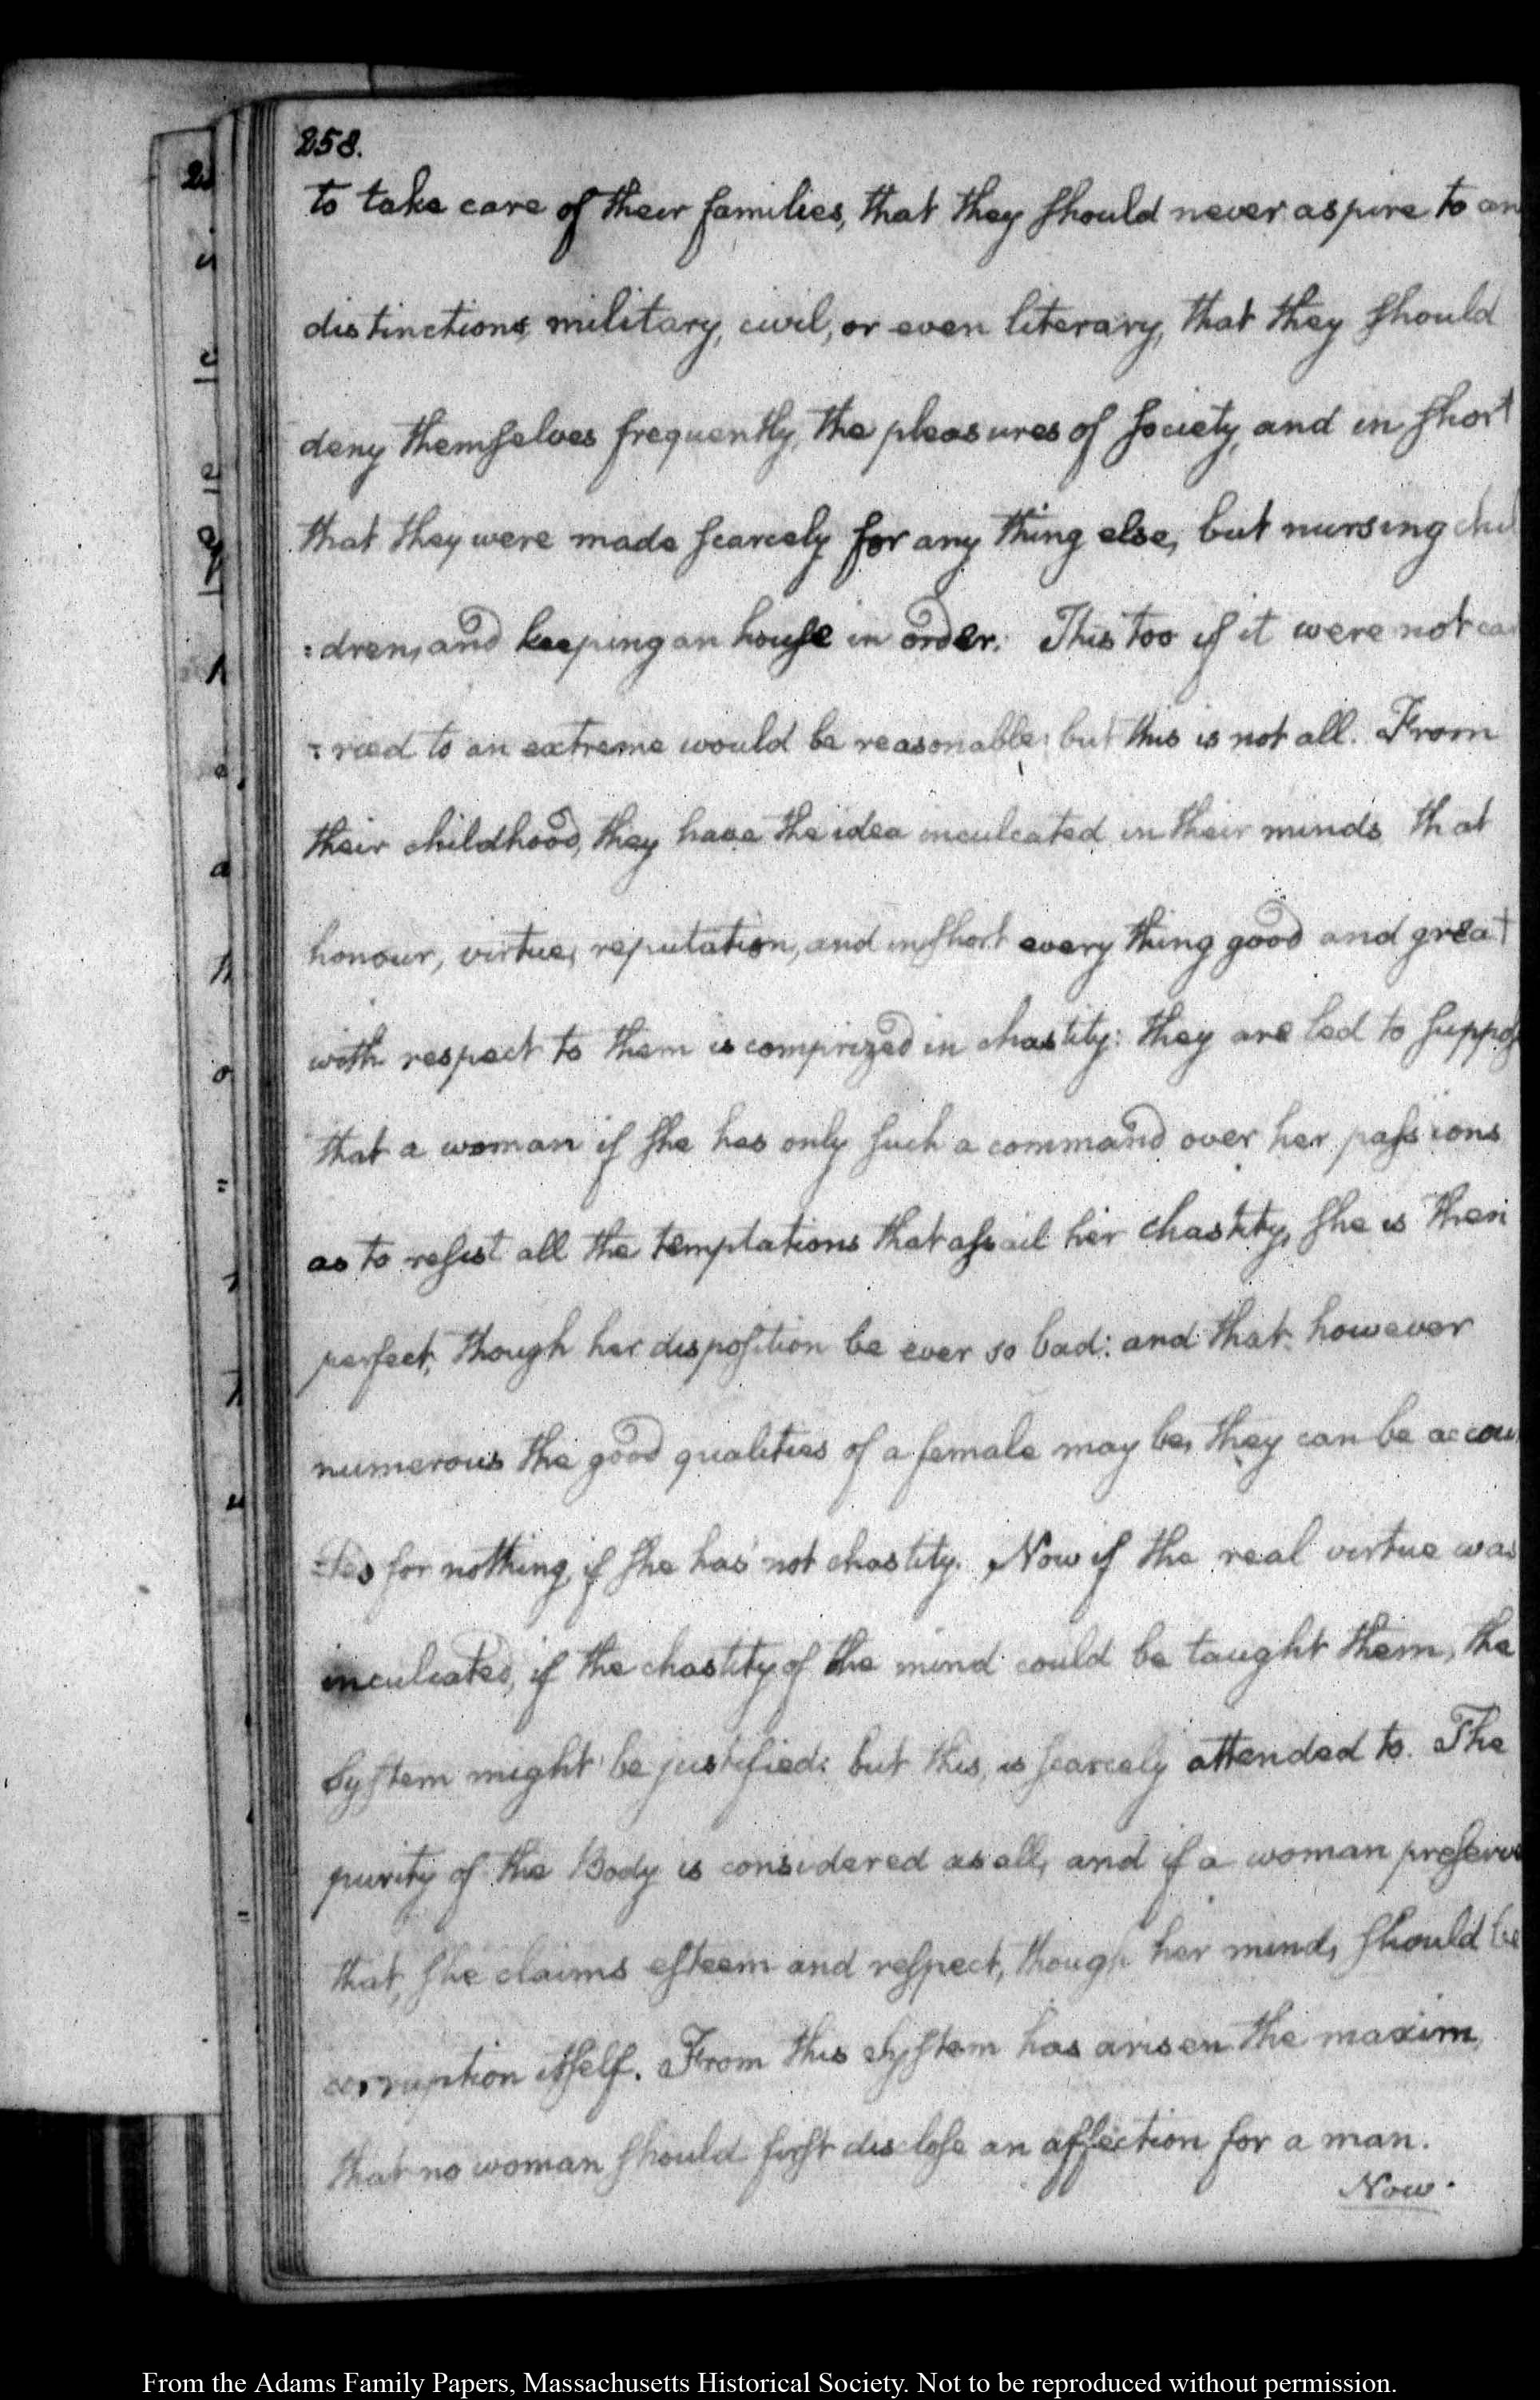 258.
to take care of their families, that they should never aspire to an
distinctions, military, civil, or even literary, that they should
deny themselves frequently, the pleasures of society, and in short
that they were made scarcely for any thing else, but nursing chil
=dren, and keeping an house in order. This too if it were not car
=ried to an extreme would be reasonable; but this is not all. From
their childhood, they have the idea inculcated in their minds that
honour, virtue, reputation, and in short every thing good and great
with respect to them is comprized in chastity: they are led to suppos
that a woman if she has only such a command over her passions
as to resist all the temptations that assail her chastity, she is then
perfect, though her disposition be ever so bad: and that however
numerous the good qualities of a female may be, they can be accou
for nothing, if she has not chastity. Now if the real virtue was
inculcated, if the chastity of the mind could be taught them, the
System might be justified: but this, is scarcely attended to. The
purity of the Body is considered as all, and if a woman preserve
that, she claims esteem and respect, though her mind, should be
corruption itself. From this System has arisen the maxim,
that no woman should first disclose an affection for a man.
Now.
From the Adams Family Papers, Massachusetts Historical Society. Not to be reproduced without permission.